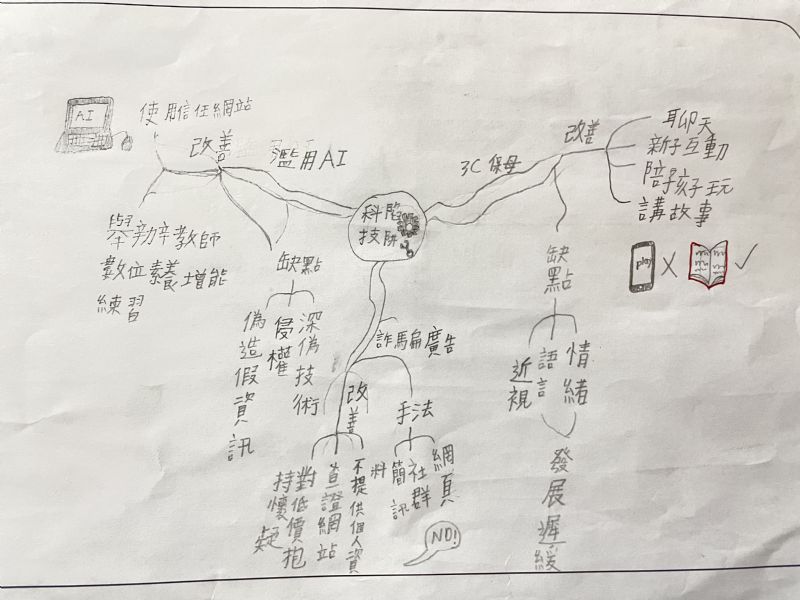 科技陷阱
濫用AI
改善
使用信任網站
AI
舉辦辛教師
數位素養增能
練習
缺點
深偽技術
侵權
偽造假資訊
詐騙廣告
改善
不提供個人資料
查證網站
對低價抱持懷疑
手法
網頁
社群
簡訊
NO!
3C保母
改善
聊天
新子互動
陪孩子玩
講故事
play
缺點
情緒
語言
近視
發展遲緩